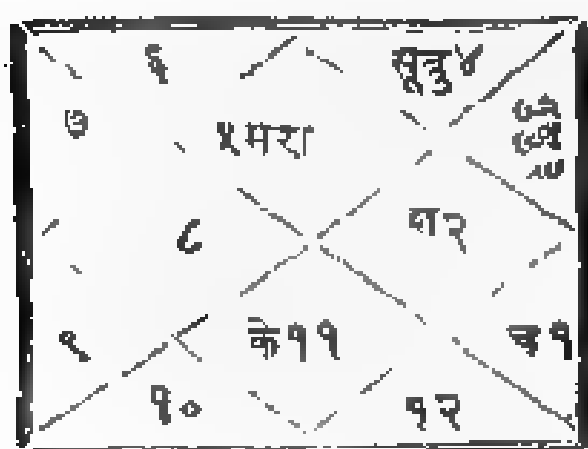 ६
सूबु४
७
५मरा
८
श२
९
के११
च१
१०
१२